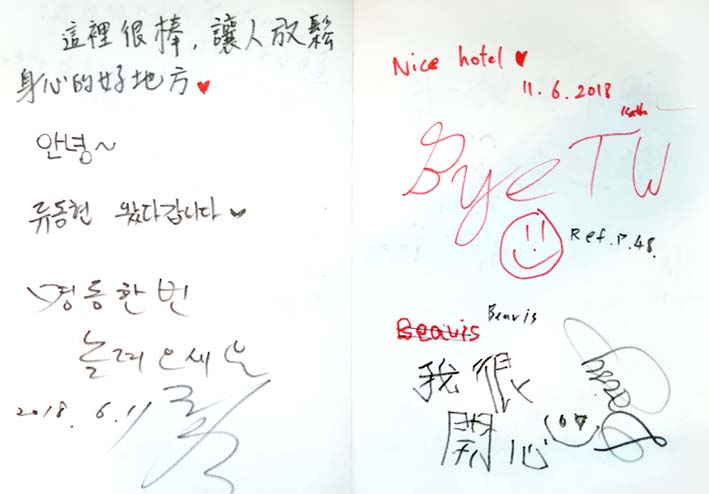 這裡很棒,讓人放鬆
身心的好地方♥
안녕~
류동현 왔다갑니다♥
명동한번
놀러오세요
2018. 6.11
Nice hotel ♥
11.6.2018
Bye TW
Ref.P.48.
Beavis
Beavis
我很
開心